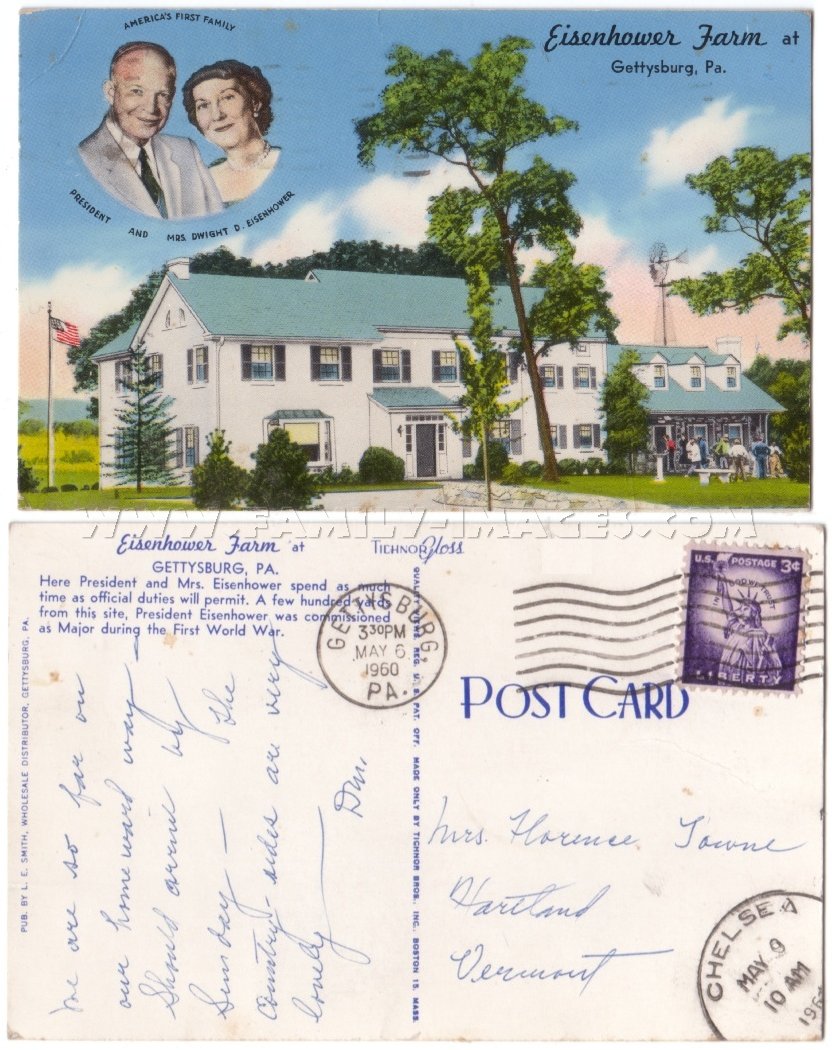 AMERICA'S FIRST FAMILY
PRESIDENT AND MRS. DWIGHT D. EISENHOWER
Eisenhower Farm at
Gettysburg, Pa.
WWW.FAMILY-IMAGES.COM
Eisenhower Farm at
GETTYSBURG, PA.
Here President and Mrs. Eisenhower spend as much
time as official duties will permit. A few hundred yards
from this site, President Eisenhower was commissioned
as Major during the First World War.
TICHNOR Gloss
GETTYSBURG,
3 30PM
MAY 6
1960
PA.
U.S. POSTAGE 3¢
IN GOD WE TRUST
LIBERTY
POST CARD
PUB. BY L. E. SMITH, WHOLESALE DISTRIBUTOR, GETTYSBURG, PA.
QUALITY VIEWS, REG. U. S. PAT. OFF. MADE ONLY BY TICHNOR BROS., INC., BOSTON 15, MASS.
We are so far on
our homeward way —
Should arrive by
Sunday — The
Country-sides are very
lovely
Mrs. Florence Towne
Hartland
Vermont
CHELSEA
MAY 9
10 AM